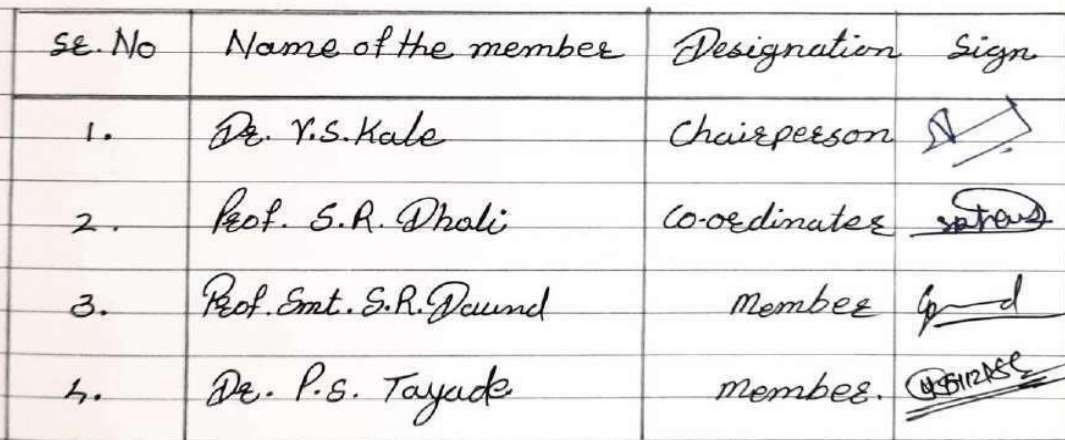 Sr. No Name of the member Designation Sign
1. Dr. V.S. Kale Chairperson
2. Prof. S.R. Dhali Co-ordinator
3. Prof. Smt. S.R. Daund Member
4. Dr. P.S. Tayade Member.